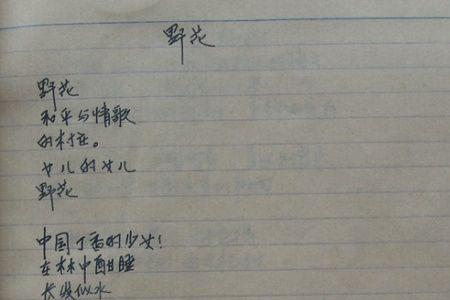 野花
野花
和平与情歌
的村庄。
女儿的女儿
野花
中国丁香的少女!
在林中酣睡
长发似水